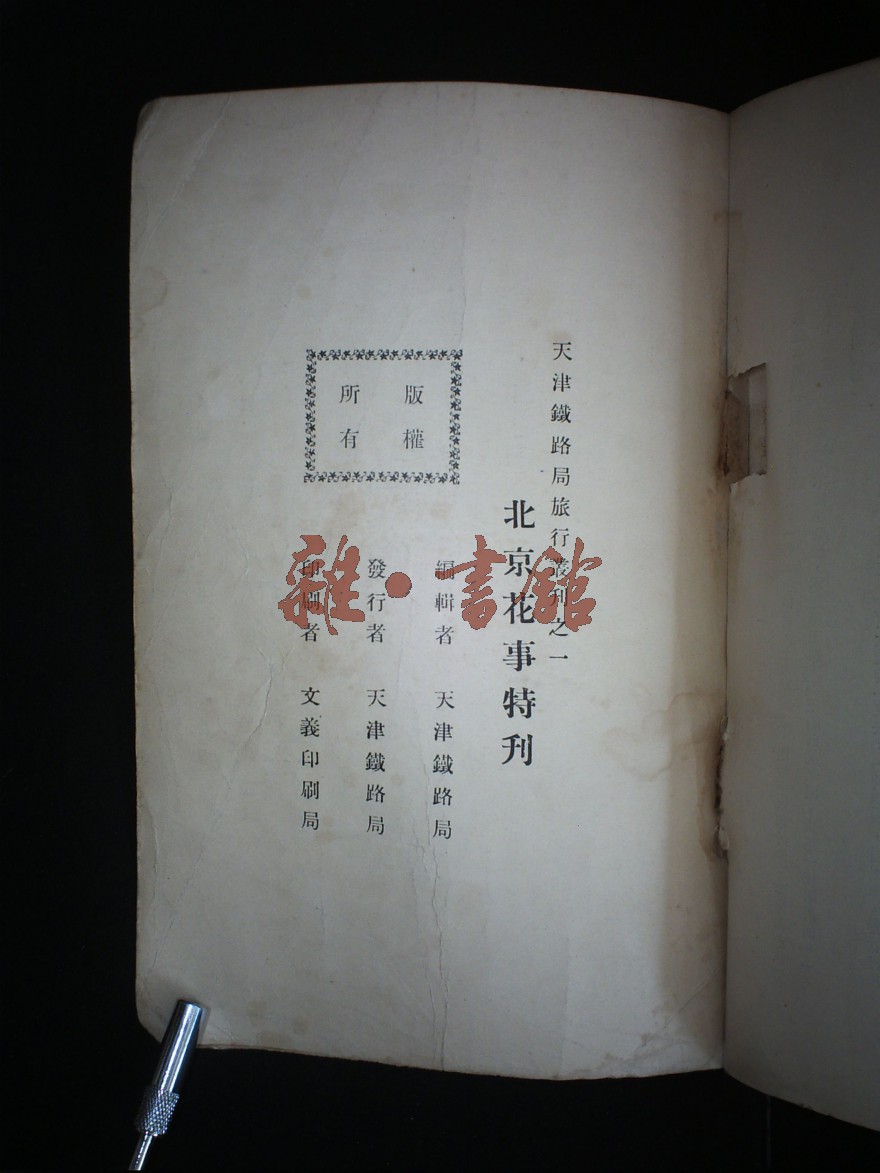 天津鐵路局旅行叢刊之一
北京花事特刊
版權
所有
編輯者 天津鐵路局
發行者 天津鐵路局
印刷者 文義印刷局
雜·書館